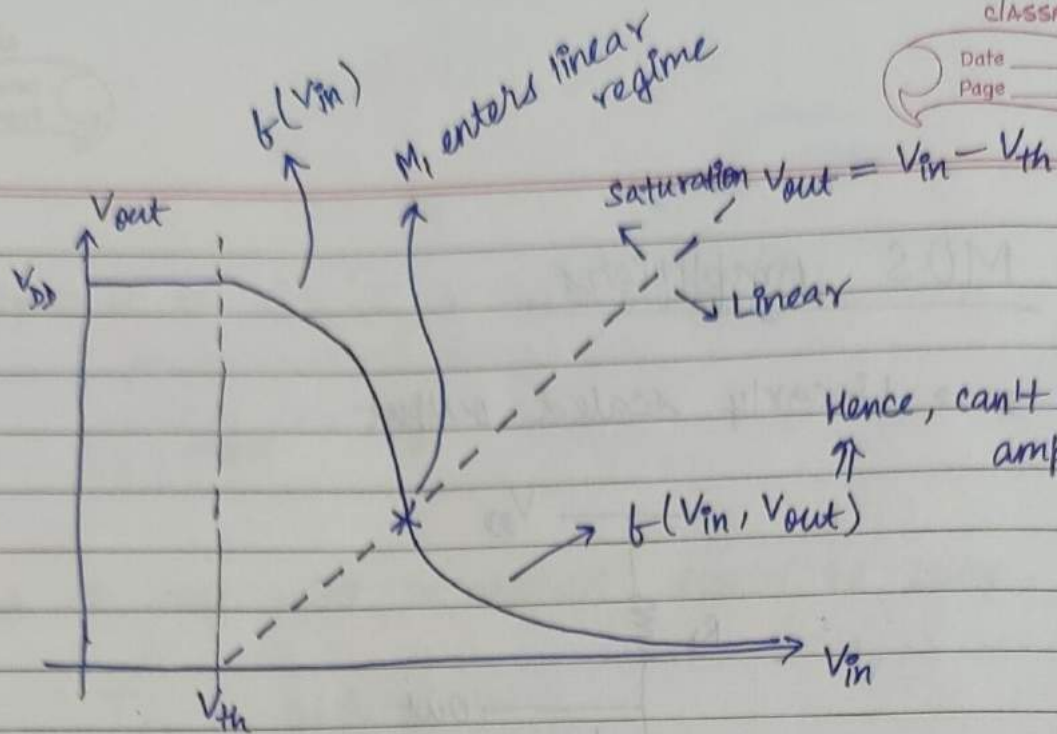 CLASSM
Date
Page
f(Vin)
M1 enters linear
regime
saturation Vout = Vin - Vth
Linear
Vout
VDD
Hence, can't
amp
f(Vin, Vout)
Vin
Vth